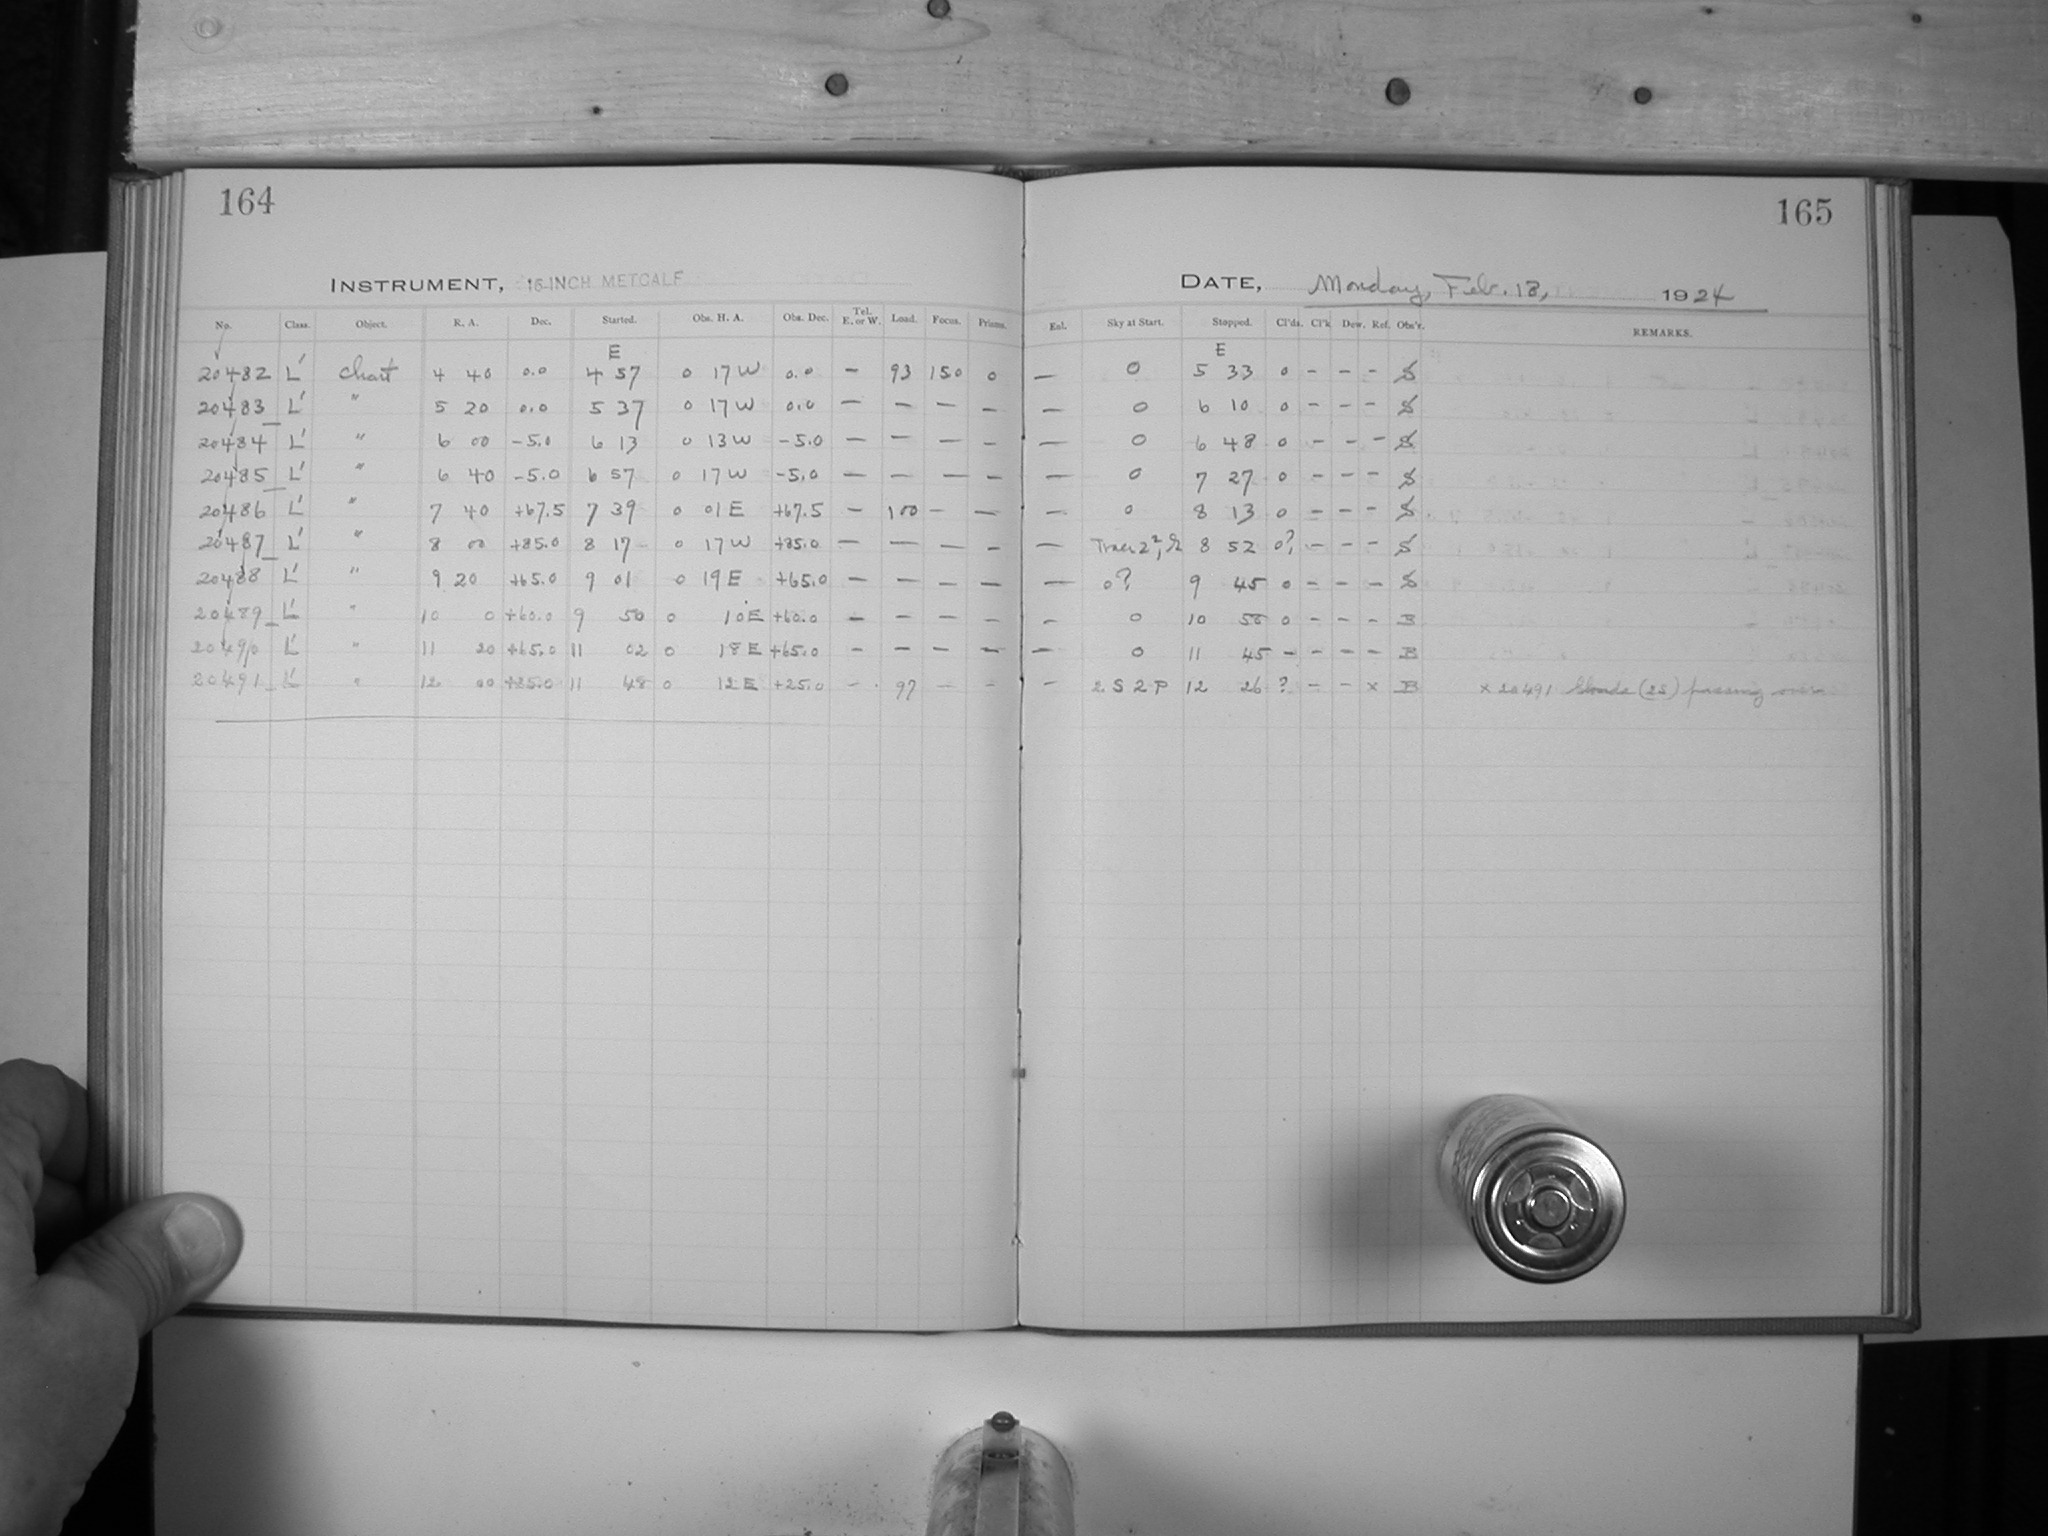 164
165
INSTRUMENT, 16-INCH METCALF
DATE, Monday, Feb. 18, 1924
No. Class. Object. R. A. Dec. Started. Obs. H. A. Obs. Dec. Tel. E. or W. Load. Focus. Prisms. Enl. Sky at Start. Stopped. Cl'ds. Cl'k Dew. Ref. Obs'r. REMARKS.
E E
20482 L' Chart 4 40 0.0 4 57 0 17 W 0.0 – 93 15.0 0 – 0 5 33 0 – – – S
20483 L' " 5 20 0.0 5 37 0 17 W 0.0 – – – – – 0 6 10 0 – – – S
20484 L' " 6 00 -5.0 6 13 0 13 W -5.0 – – – – – 0 6 48 0 – – – S
20485 L' " 6 40 -5.0 6 57 0 17 W -5.0 – – – – – 0 7 27 0 – – – S
20486 L' " 7 40 +67.5 7 39 0 01 E +67.5 – 100 – – – 0 8 13 0 – – – S
20487 L' " 8 00 +85.0 8 17 0 17 W +85.0 – – – – – 8 52 0? – – – S
20488 L' " 9 20 +65.0 9 01 0 19 E +65.0 – – – – – 0? 9 45 0 – – – S
20489 L' " 10 0 +60.0 9 50 0 10 E +60.0 – – – – – 0 10 58 0 – – – B
20490 L' " 11 20 +65.0 11 02 0 18 E +65.0 – – – – – 0 11 45 – – – – B
20491 L' " 12 00 +25.0 11 48 0 12 E +25.0 – 97 – – – 2 S 2 P 12 26 ? – – x B x 20491 Clouds (2S) passing over